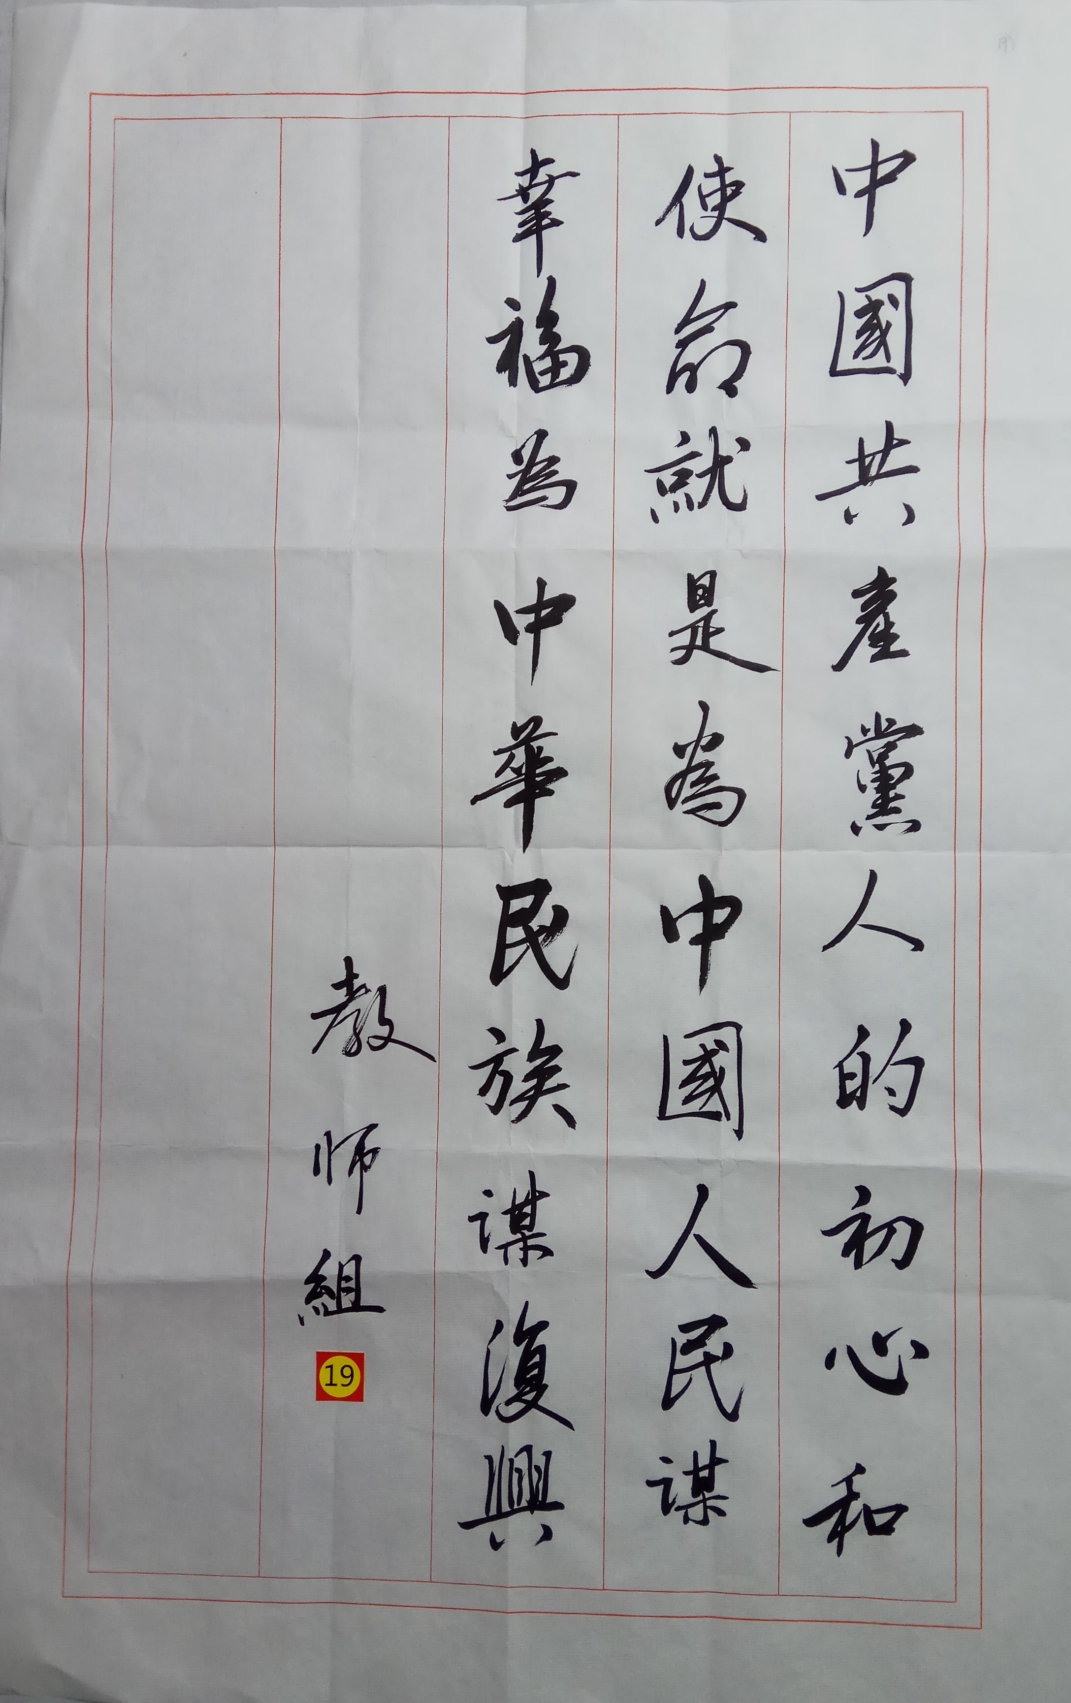 中國共產黨人的初心和
使命就是為中國人民謀
幸福為中華民族謀復興
教师組
19